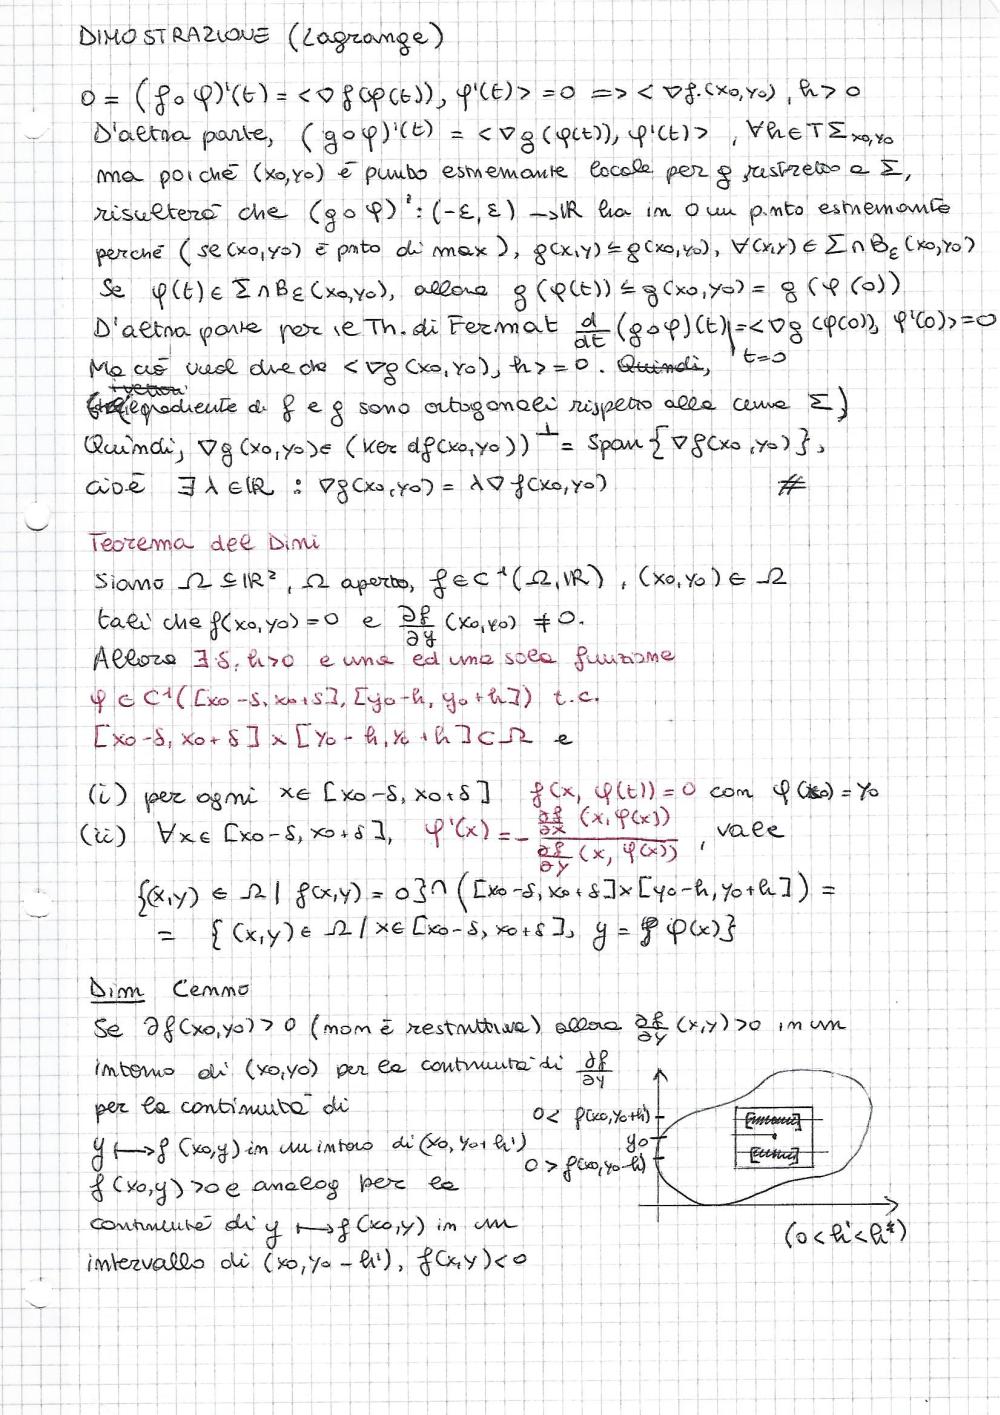 DIMOSTRAZIONE (Lagrange)
0 = (f∘φ)'(t) = <∇f(φ(t)), φ'(t)> = 0 => <∇f(x0,y0), h> 0
D'altra parte, (g∘φ)'(t) = <∇g(φ(t)), φ'(t)>, ∀h∈TΣx0,y0
ma poiché (x0,y0) è punto estremante locale per g ristretto a Σ,
risulterà che (g∘φ)': (-ε, ε) → IR ha in 0 un p.nto estremante
perché (se (x0,y0) è pnto di max), g(x,y) ≤ g(x0,y0), ∀(x,y) ∈ Σ∩Bε(x0,y0)
Se φ(t) ∈ Σ∩Bε(x0,y0), allora g(φ(t)) ≤ g(x0,y0) = g(φ(0))
D'altra parte per il Th. di Fermat d/dt (g∘φ)(t)|t=0 = <∇g(φ(0)), φ'(0)> = 0
Ma ciò vuol dire che <∇g(x0,y0), h> = 0. Quindi,
i vettori
gradiente di f e g sono ortogonali rispetto alla curva Σ)
Quindi, ∇g(x0,y0) ∈ (ker df(x0,y0))⊥ = Span{∇f(x0,y0)},
cioè ∃ λ ∈ IR : ∇g(x0,y0) = λ∇f(x0,y0) #
Teorema del Dini
Siano Ω ⊆ IR², Ω aperto, f ∈ C¹(Ω, IR), (x0,y0) ∈ Ω
tali che f(x0,y0) = 0 e ∂f/∂y (x0,y0) ≠ 0.
Allora ∃ δ, h>0 e una ed una sola funzione
φ ∈ C¹([x0-δ, x0+δ], [y0-h, y0+h]) t.c.
[x0-δ, x0+δ] x [y0-h, y0+h] ⊂ Ω e
(i) per ogni x ∈ [x0-δ, x0+δ] f(x, φ(t)) = 0 con φ(x0) = y0
(ii) ∀x ∈ [x0-δ, x0+δ], φ'(x) = - ∂f/∂x (x, φ(x)) / ∂f/∂y (x, φ(x)), vale
{(x,y) ∈ Ω | f(x,y) = 0} ∩ ([x0-δ, x0+δ] x [y0-h, y0+h]) =
= {(x,y) ∈ Ω / x ∈ [x0-δ, x0+δ], y = φ(x)}
Dim Cenno
Se ∂f(x0,y0) > 0 (non è restrittiva) allora ∂f/∂y (x,y) > 0 in un
intorno di (x0,y0) per la continuità di ∂f/∂y
per la continuità di
y ↦ f(x0,y) in un intoro di (x0, y0+h')
f(x0,y) > 0 e analog per la
continuità di y ↦ f(x0,y) in un
intervallo di (x0, y0-h'), f(x,y) < 0
0 < f(x0,y0+h')
y0
0 > f(x0,y0-h')
(0 < h' < h*)